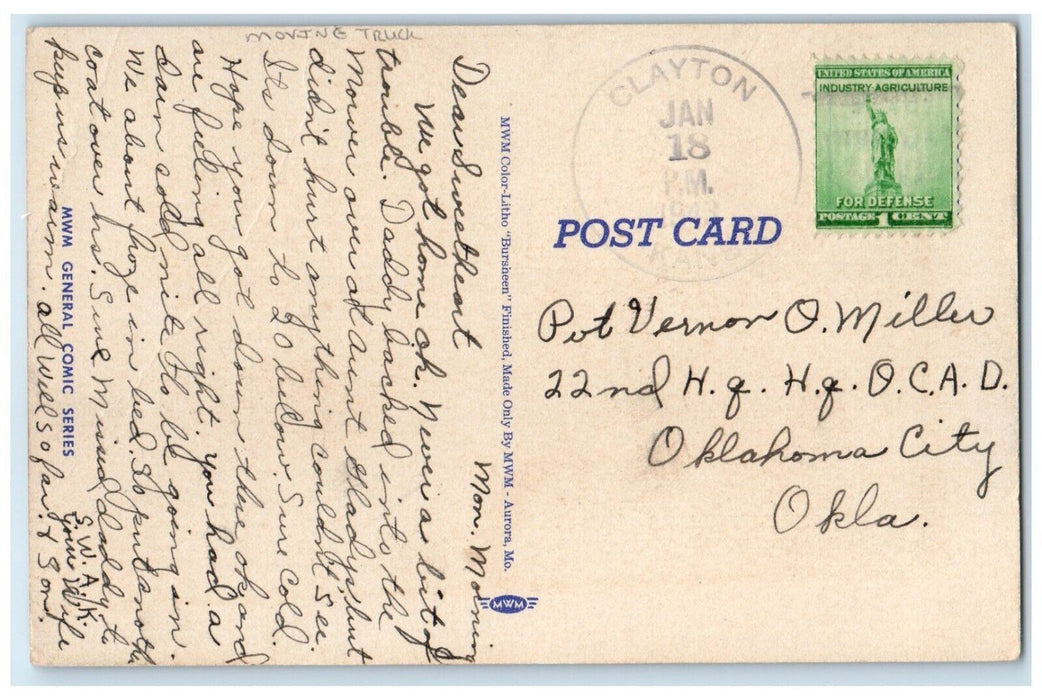 MOVING TRUCK
Mon. Morning
Dear Sweetheart
We got home ok. Never a bit of
trouble. Daddy backed into the
Mower over at Aunt Gladys, but
didn't hurt anything couldn't see.
Its down to 20 below. Sure cold.
Hope you got down there ok and
are feeling all right. you had a
darn cold nite to be going in.
We about froze in bed. So put another
coat over his. Sure Missed daddy to
keep us warm. all well so far.
S.W.A.K.
your Wife
& Son.
MWM GENERAL COMIC SERIES
MWM Color-Litho "Bursheen" Finished, Made Only By MWM - Aurora, Mo.
MWM
CLAYTON
JAN
18
P.M.
KANS
UNITED STATES OF AMERICA
INDUSTRY AGRICULTURE
FOR DEFENSE
POSTAGE 1 CENT
POST CARD
Pvt Vernon O. Miller
22nd H.q. H.q. O.C.A.D.
Oklahoma City
Okla.